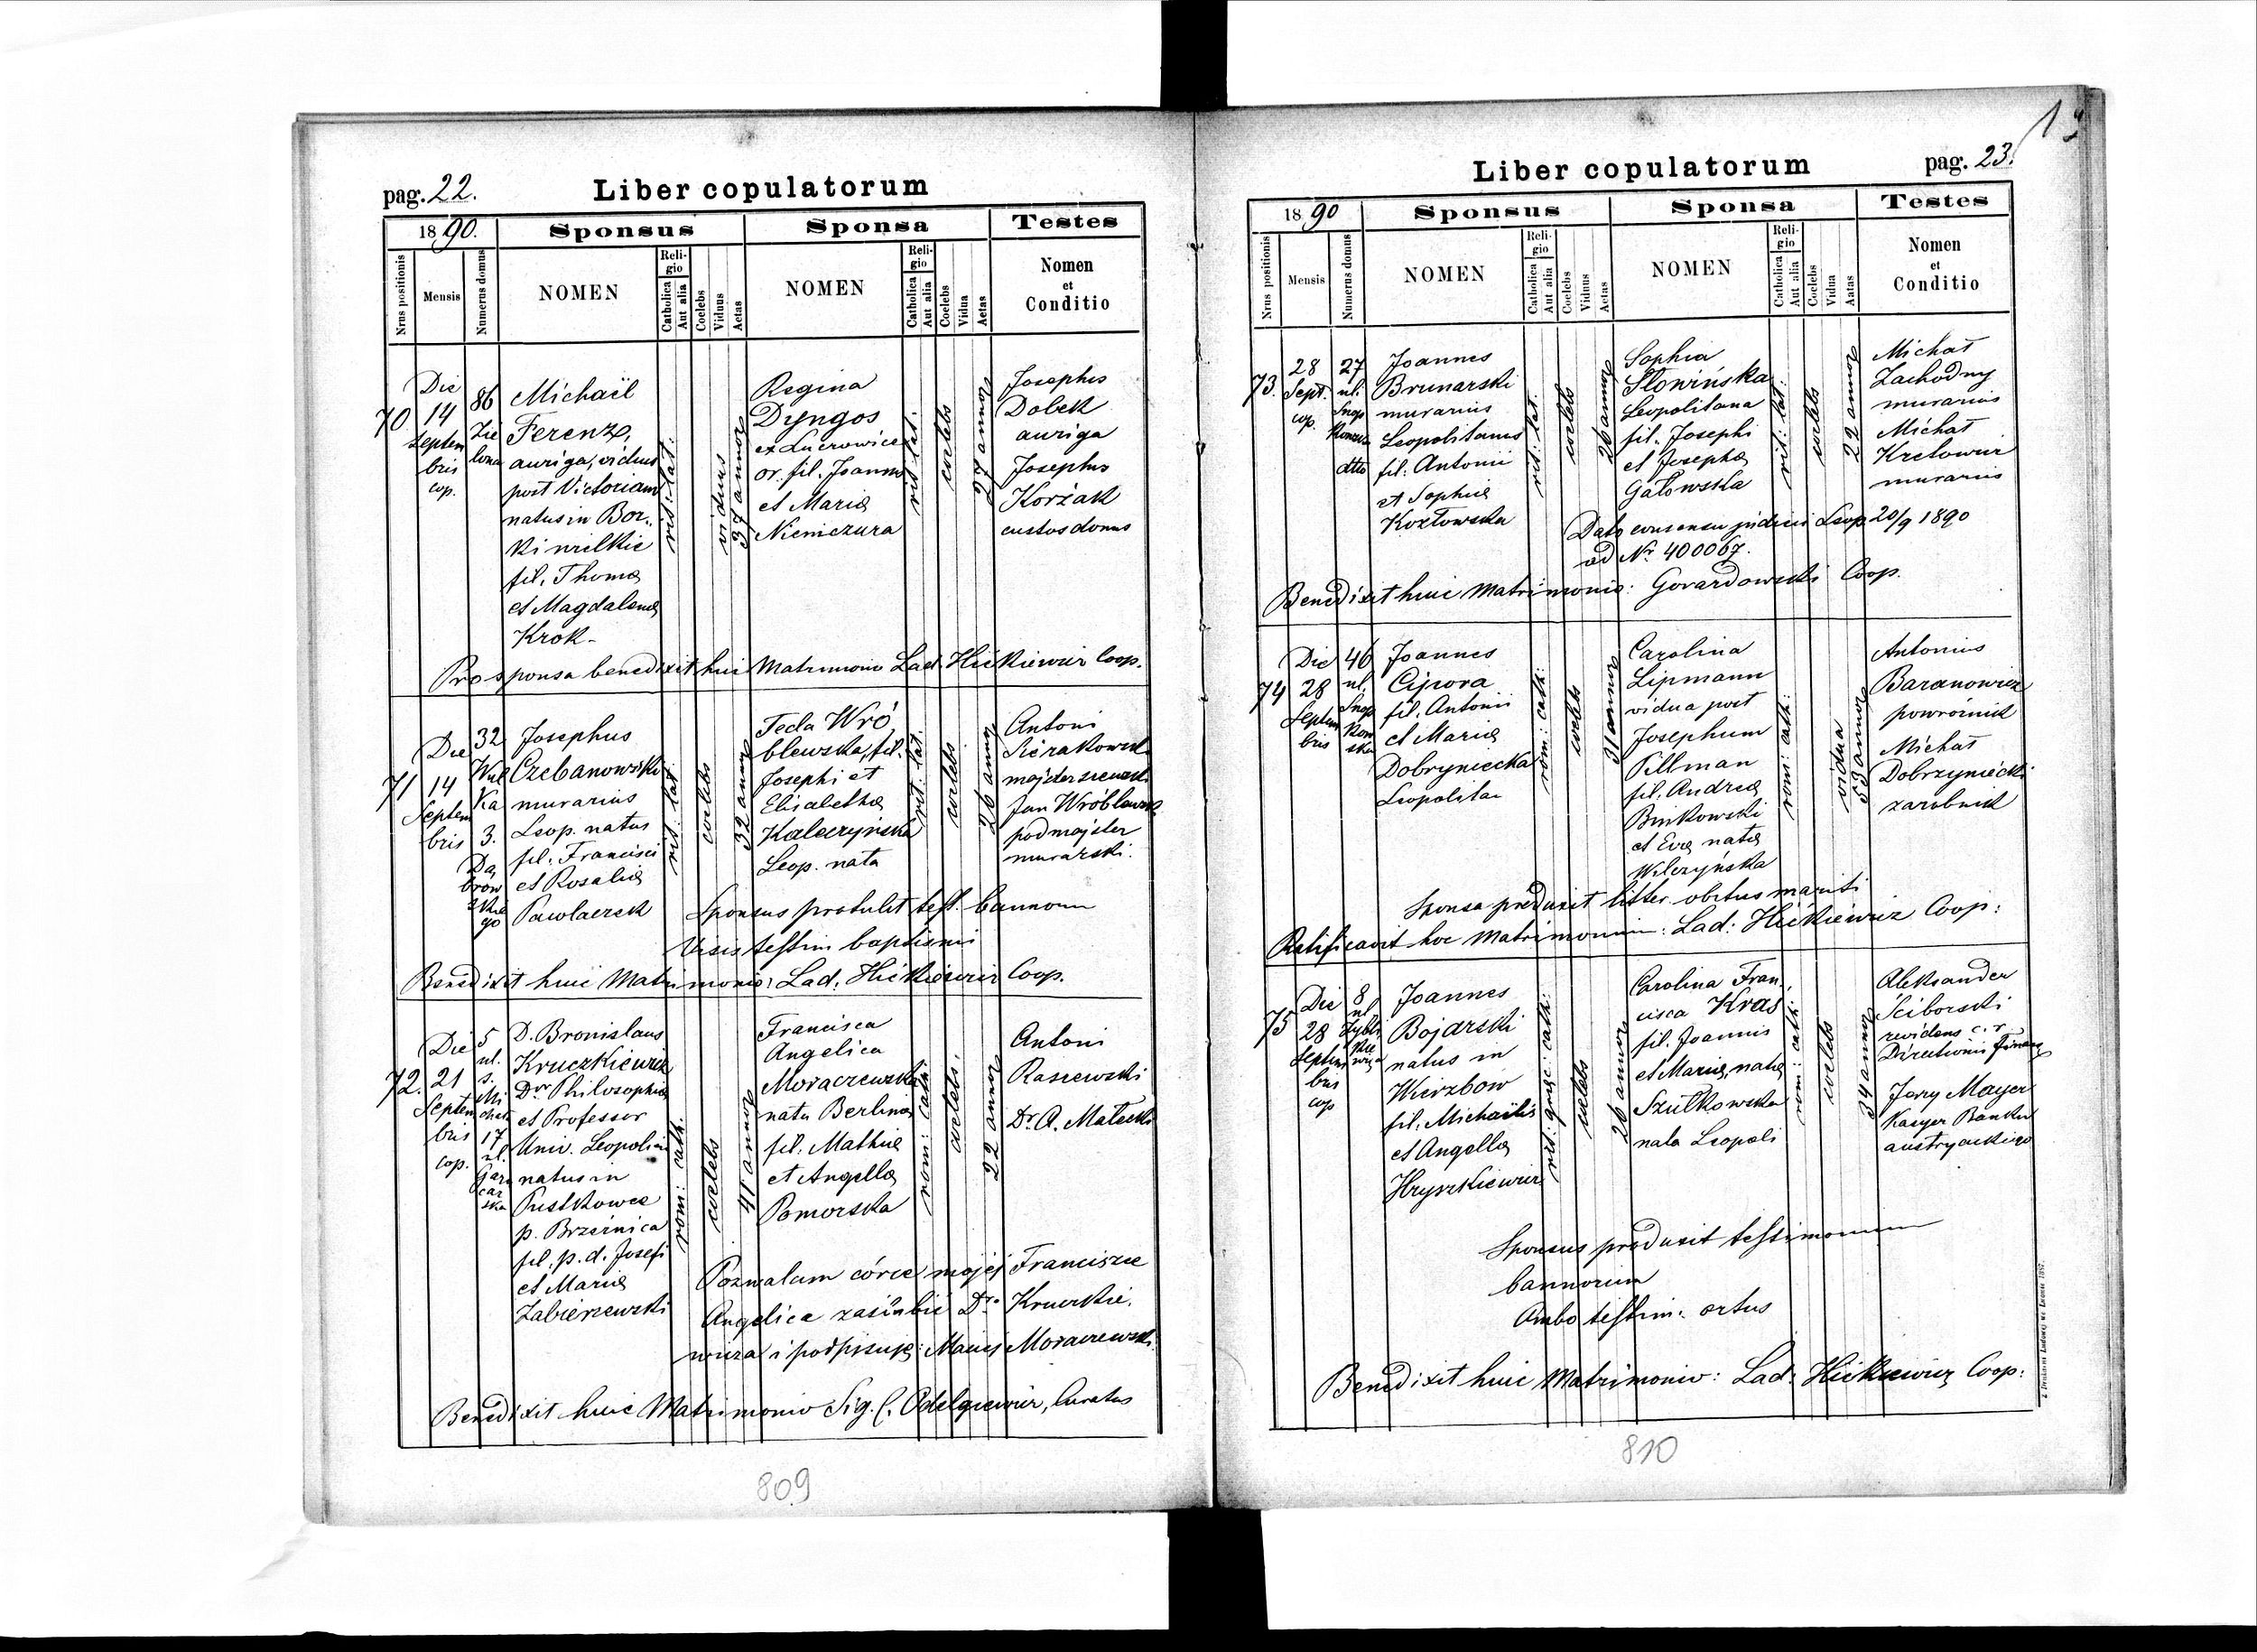 pag. 22.
Liber copulatorum
1890.
Sponsus
Sponsa
Testes
Nrus positionis
Mensis
Numerus domus
NOMEN
Religio
Catholica
Aut alia
Coelebs
Viduus
Aetas
NOMEN
Religio
Catholica
Aut alia
Coelebs
Vidua
Aetas
Nomen
et
Conditio
70
Die
14
Septem
bris
cop.
86
Zie
lona
Michaël
Ferenz,
auriga, viduus
post Victoriam
natus in Bor-
ki wielkie
fil. Thomæ
et Magdalenæ
Krok-
rit: lat:
viduus
37 annor
Regina
Dyngos
ex Lucrowice
or. fil. Joannis
et Mariæ
Niemczura
rit: lat:
coelebs
27 annor
Josephus
Dobek
auriga
Josephus
Korżak
custos domus
Pro sponsa benedixit huic Matrimonio Lad. Hickiewicz Coop.
71
Die
14
Septem
bris
32
Wul
Ka
3.
Dą
brow
skie
go
Josephus
Czebanowski
murarius
Leop. natus
fil. Francisci
et Rosaliæ
Pawlaczek
rit: lat
coelebs
32 annor
Tecla Wró
blewska, fil.
Josephi et
Elisabethæ
Kalaczyńska
Leop. nata
rit: lat.
coelebs
26 annor
Antoni
Sierakowski
majster szewski
Jan Wróblewski
podmajster
murarski.
Sponsus protulit test. bannorum
Visis testim baptismi
Benedixit huic Matrimonio: Lad. Hickiewicz Coop.
72.
Die
21
Septem
bris
cop.
5
ul.
s.
Mi
chała
17
ul.
Garn
car
ska
D. Bronislaus
Kruczkiewicz
Dor Philosophiæ
et Professor
Univ. Leopolien
natus in
Pustkowce
p. Brzeźnica
fil. p. d. Josefi
et Mariæ
Zabierzewski
rom: cath.
coelebs
41 annor
Francisca
Angelica
Moraczewska
nata Berlinæ
fil. Mathiæ
et Angellæ
Pomorska
rom: cath:
coelebs.
22 annor
Antoni
Raszewski
Dr. A. Małecki
Pozwalam córce mojej Franciszce
Angelice zaślubić Dra. Kruczkie.
wicza i podpisuję: Maciej Moraczewski.
Benedixit huic Matrimonio Sig. C. Odelgiewicz, Curatus
809
pag. 23.
Liber copulatorum
1890
Sponsus
Sponsa
Testes
Nrus positionis
Mensis
Numerus domus
NOMEN
Religio
Catholica
Aut alia
Coelebs
Viduus
Aetas
NOMEN
Religio
Catholica
Aut alia
Coelebs
Vidua
Aetas
Nomen
et
Conditio
73
28
Sept.
cop.
27
ul.
Snop
Kowska
dtto
Joannes
Brunarski
murarius
Leopolitanus
fil. Antonii
et Sophiæ
Kozłowska
rit: lat.
coelebs
26 annor
Sophia
Słowińska
Leopolitana
fil. Josephi
et Josephæ
Gałowska
rit: lat.
coelebs
22 annor
Michał
Zachodny
murarius
Michał
Kretowicz
murarius
Dato consensu judicii Leop 20/9 1890
ad Nr. 400067.
Benedixit huic Matrimonio: Gorardowski Coop.
74
Die
28
Septem
bris
46
ul.
Snop
Kow
ska
Joannes
Cipora
fil. Antonii
et Mariæ
Dobryniecka
Leopolitan
rom: cath:
coelebs
31 annor
Carolina
Lipmann
vidua post
Josephum
Pillman
fil. Andreæ
Binkowski
et Evæ natæ
Wilczyńska
rom: cath:
vidua
53 annor
Antonius
Baranowicz
powroźnik
Michał
Dobrzyniecki
zarobnik
Sponsa produxit litter. obitus mariti
Ratificavit hoc Matrimonium: Lad: Hickiewicz Coop:
75
Die
28
Septem
bris
cop
8
ul
Zybli
Kie
wicza
Joannes
Bojarski
natus in
Wierzbow
fil. Michaëlis
et Angellæ
Hryszkiewicz
rit: græc: cath:
coelebs
26 annor
Carolina Fran.
cisca Kras
fil. Joannis
et Mariæ, natæ
Szutkowska
nata Leopoli
rom: cath:
coelebs
34 annor
Aleksander
Sciborski
rewidens c. r.
Directionis finanz
Jerzy Mayer
Kasyer Banku
austryackiego
Sponsus produxit testimonium
bannorum
Ambo testim: ortus
Benedixit huic Matrimonio: Lad. Hickiewicz Coop:
810